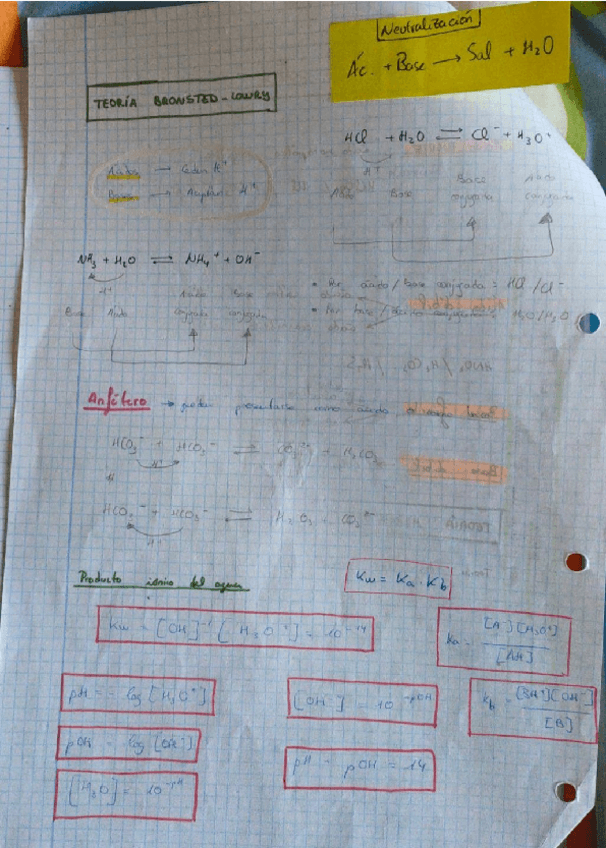 Neutralización
Ác. + Base → Sal + H₂O
TEORÍA BRONSTED-LOWRY
HCl + H₂O ⇌ Cl⁻ + H₃O⁺
H⁺
Ácidos → Ceden H⁺
Bases → Aceptan H⁺
Ácido Base Base conjugada Ácido conjugado
NH₃ + H₂O ⇌ NH₄⁺ + OH⁻
H⁺
Base Ácido Ácido conjugado Base conjugada
• Par ácido / base conjugada = HCl / Cl⁻
• Par base /
Anfótero → puede presentarse como ácido
HCO₃⁻ + HCO₃⁻ ⇌ CO₃²⁻ + H₂CO₃
H⁺
HCO₃⁻ + HCO₃⁻ ⇌ H₂CO₃ + CO₃²⁻
H⁺
Producto iónico del agua
Kw = Ka · Kb
Kw = [OH]⁻ [H₃O⁺] = 10⁻¹⁴
Ka = [A⁻][H₃O⁺] / [AH]
pH = - log [H₃O⁺]
[OH⁻] = 10⁻ᵖᴼᴴ
Kb = [BH⁺][OH⁻] / [B]
pOH = log [OH⁻]
pH - pOH = 14
[H₃O] = 10⁻ᵖᴴ